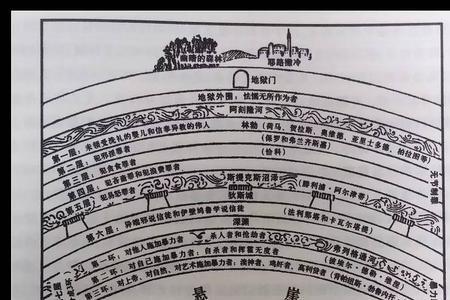 幽暗的森林
耶路撒冷
地狱门
地狱外围：怯懦无所作为者
阿刻隆河
第一层：未领受洗礼的婴儿和信奉异教的伟人 林勃（荷马、贺拉斯、奥维德、亚里士多德、柏拉图等）
第二层：犯邪淫罪者（保罗和弗兰齐斯嘉）
第三层：犯贪食罪者（恰科）
第四层：犯吝啬罪和犯浪费罪者
第五层：犯易怒罪者 斯提克斯沼泽（腓利波·阿尔津蒂）
狄斯城
第六层：异端邪说信徒和伊壁鸠鲁学说信徒（法利那塔和卡瓦尔堪提）
深渊
第一环：对他人施加暴力者 杀人者和抢劫者 弗列格通河
第二环：对自己施加暴力者：自杀者和挥霍无度者
第三环：对上帝、对自然、对艺术施加暴力者：渎神者、鸡奸者、高利贷者
悬 崖